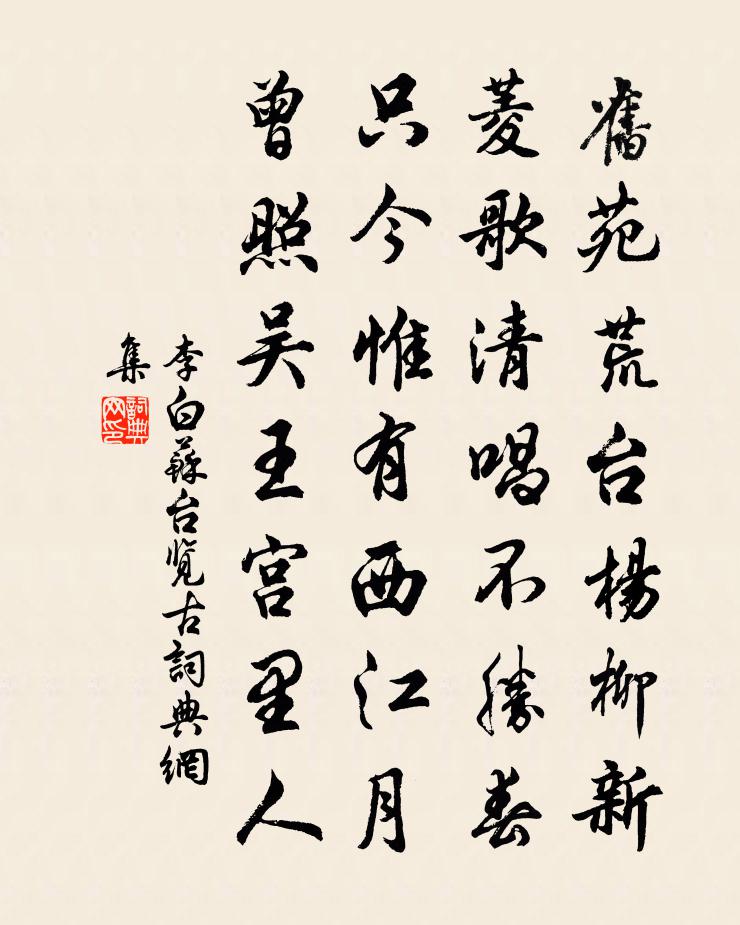 舊苑荒台楊柳新
菱歌清唱不勝春
只今惟有西江月
曾照吴王宫里人
李白蘇台覽古詞典網
集
詞典
网印